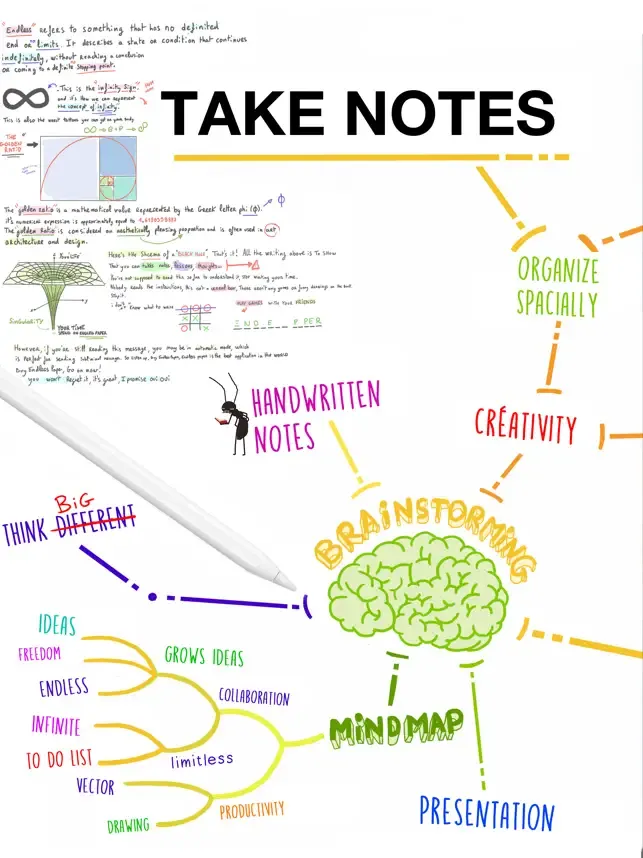 "Endless" refers to something that has no defined
end or limits. It describes a state or condition that continues
indefinitely, without reaching a conclusion
or coming to a definite stopping point.
∞ - This is the infinity sign.
and it's how we can represent
the concept of infinity.
This is also the worst tattoo you can get on your body
THE
GOLDEN
RATIO
The "golden ratio" is a mathematical value represented by the Greek letter phi (φ). φ
it's numerical expression is approximately equal to
The golden ratio is considered an aesthetically pleasing proportion and is often used in art
architecture and design.
Singularity
YOUR TIME
SPEND ON ENDLESS PAPER
That's it! All the writing above is to show
that you can take notes, lessons, thoughts
You're not supposed to read this so far to understand it, stop wasting your time.
PLAY GAMES WITH YOUR FRIENDS
However, if you're still reading this message, you may be in automatic mode, which
is perfect for sending subliminal messages. So listen up, buy Endless Paper, Endless paper is the best application in the world
Buy Endless Paper, Go on now!
you won't Regret it, it's great, I promise oui oui
TAKE NOTES
ORGANIZE
SPACIALLY
CRÉATIVITY
HANDWRITTEN
NOTES
BRAINSTORMING
BIG
THINK DIFFERENT
IDEAS
FREEDOM
GROWS IDEAS
ENDLESS
COLLABORATION
INFINITE
MINDMAP
TO DO LIST
limitless
VECTOR
PRODUCTIVITY
DRAWING
PRESENTATION